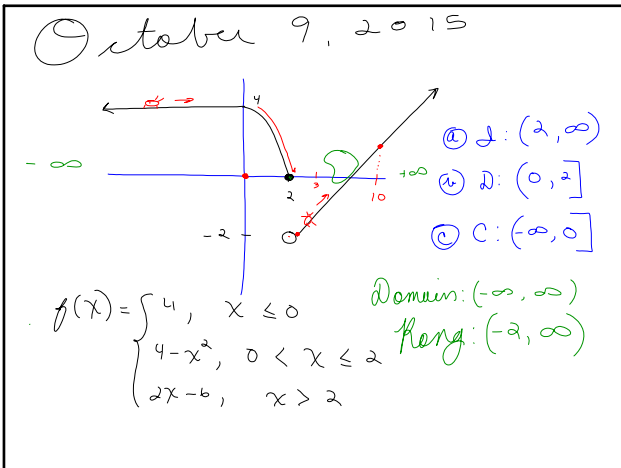 October 9, 2015
4
- ∞
+∞
2
3
10
-2
ⓐ I: (2, ∞)
ⓑ D: (0, 2]
ⓒ C: (-∞, 0]
Domain: (-∞, ∞)
Rang: (-2, ∞)
f(x) = { 4, x ≤ 0
4-x², 0 < x ≤ 2
2x-6, x > 2